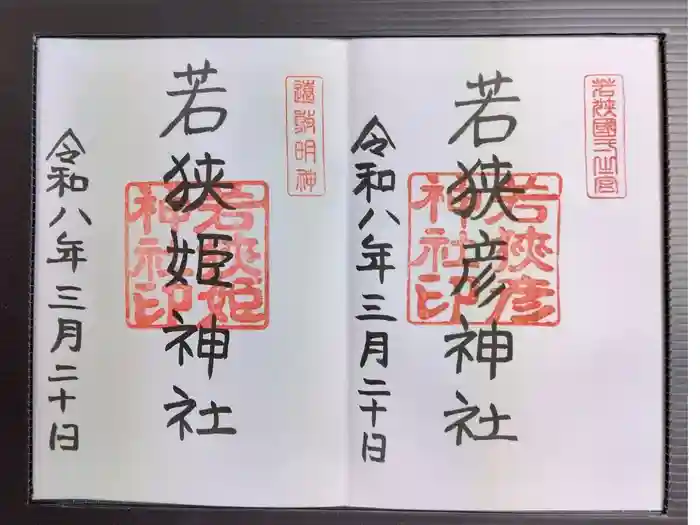 若狭國一之宮
若狭彦神社
若狭彦
神社印
令和八年三月二十日
遠敷明神
若狭姫神社
若狭姫
神社印
令和八年三月二十日